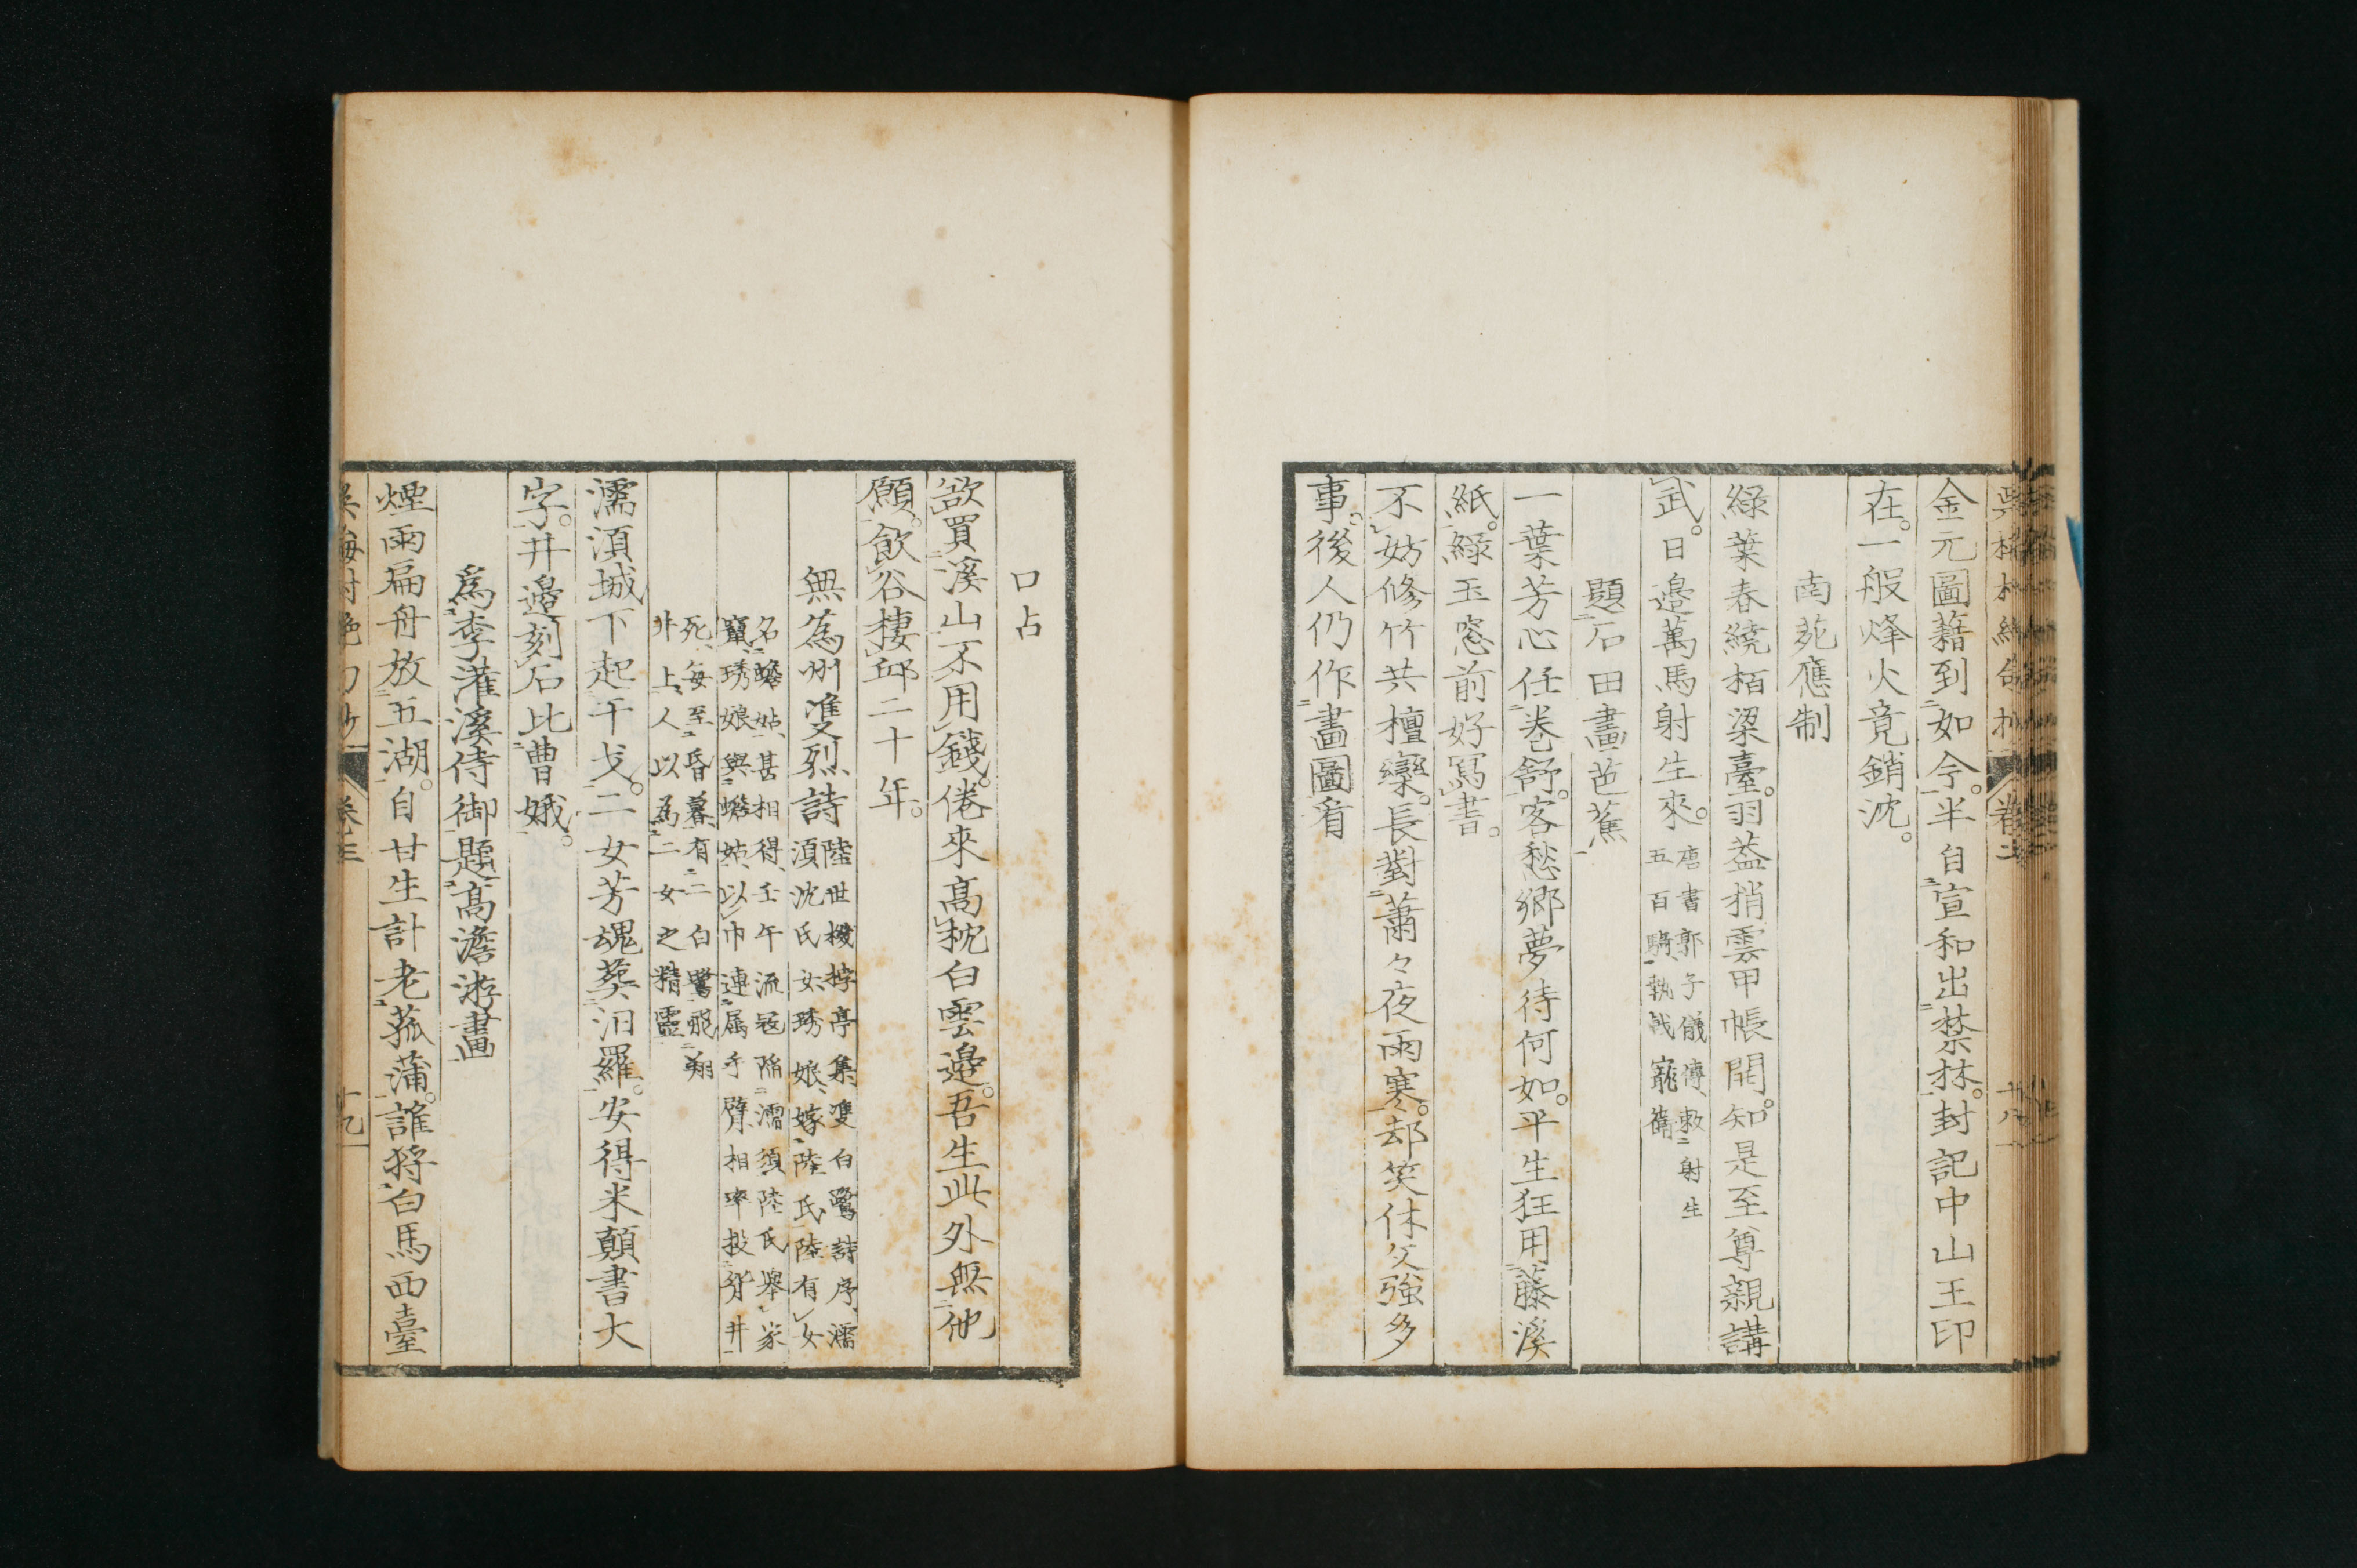 金元圖籍到如今。半自宣和出禁林。封記中山王印
在。一般烽火竟銷沈。
南苑應制
綠葉春繞栢梁臺。羽葢捎雲甲帳開。知是至尊親講
武。日邉萬馬射生來。唐書郭子儀傳、敕射生
五百騎、執戟寵衛
題石田畫芭蕉
一葉芳心任卷舒。客愁鄉夢待何如。平生狂用藤溪
紙。綠玉窓前好寫書。
不妨修竹共檀欒。長對蕭々夜雨寒。却笑休父強多
事。後人仍作畫圖看
口占
欲買溪山不用錢。倦來高枕白雲邉。吾生此外無他
願。飲谷棲邱二十年。
無爲州雙烈詩陸世楼桴亭集雙白鷺詩序、濡
須沈氏女琇娘、嫁陸氏陸有女
名蟾姑、甚相得、壬午流寇陥濡須、陸氏舉家
竄、琇娘與蟾姑、以巾連屬手臂、相率投眢井
死、毎至昏暮、有二白鷺飛翔
井上、人以爲二女之精靈
濡須城下起干戈。二女芳魂葬汨羅。安得米顛書大
字。井邉刻石比曹娥。
爲李灌溪侍御題高澹游畫
煙雨扁舟放五湖。自甘生計老菰蒲。誰將白馬西臺
卷三
十九